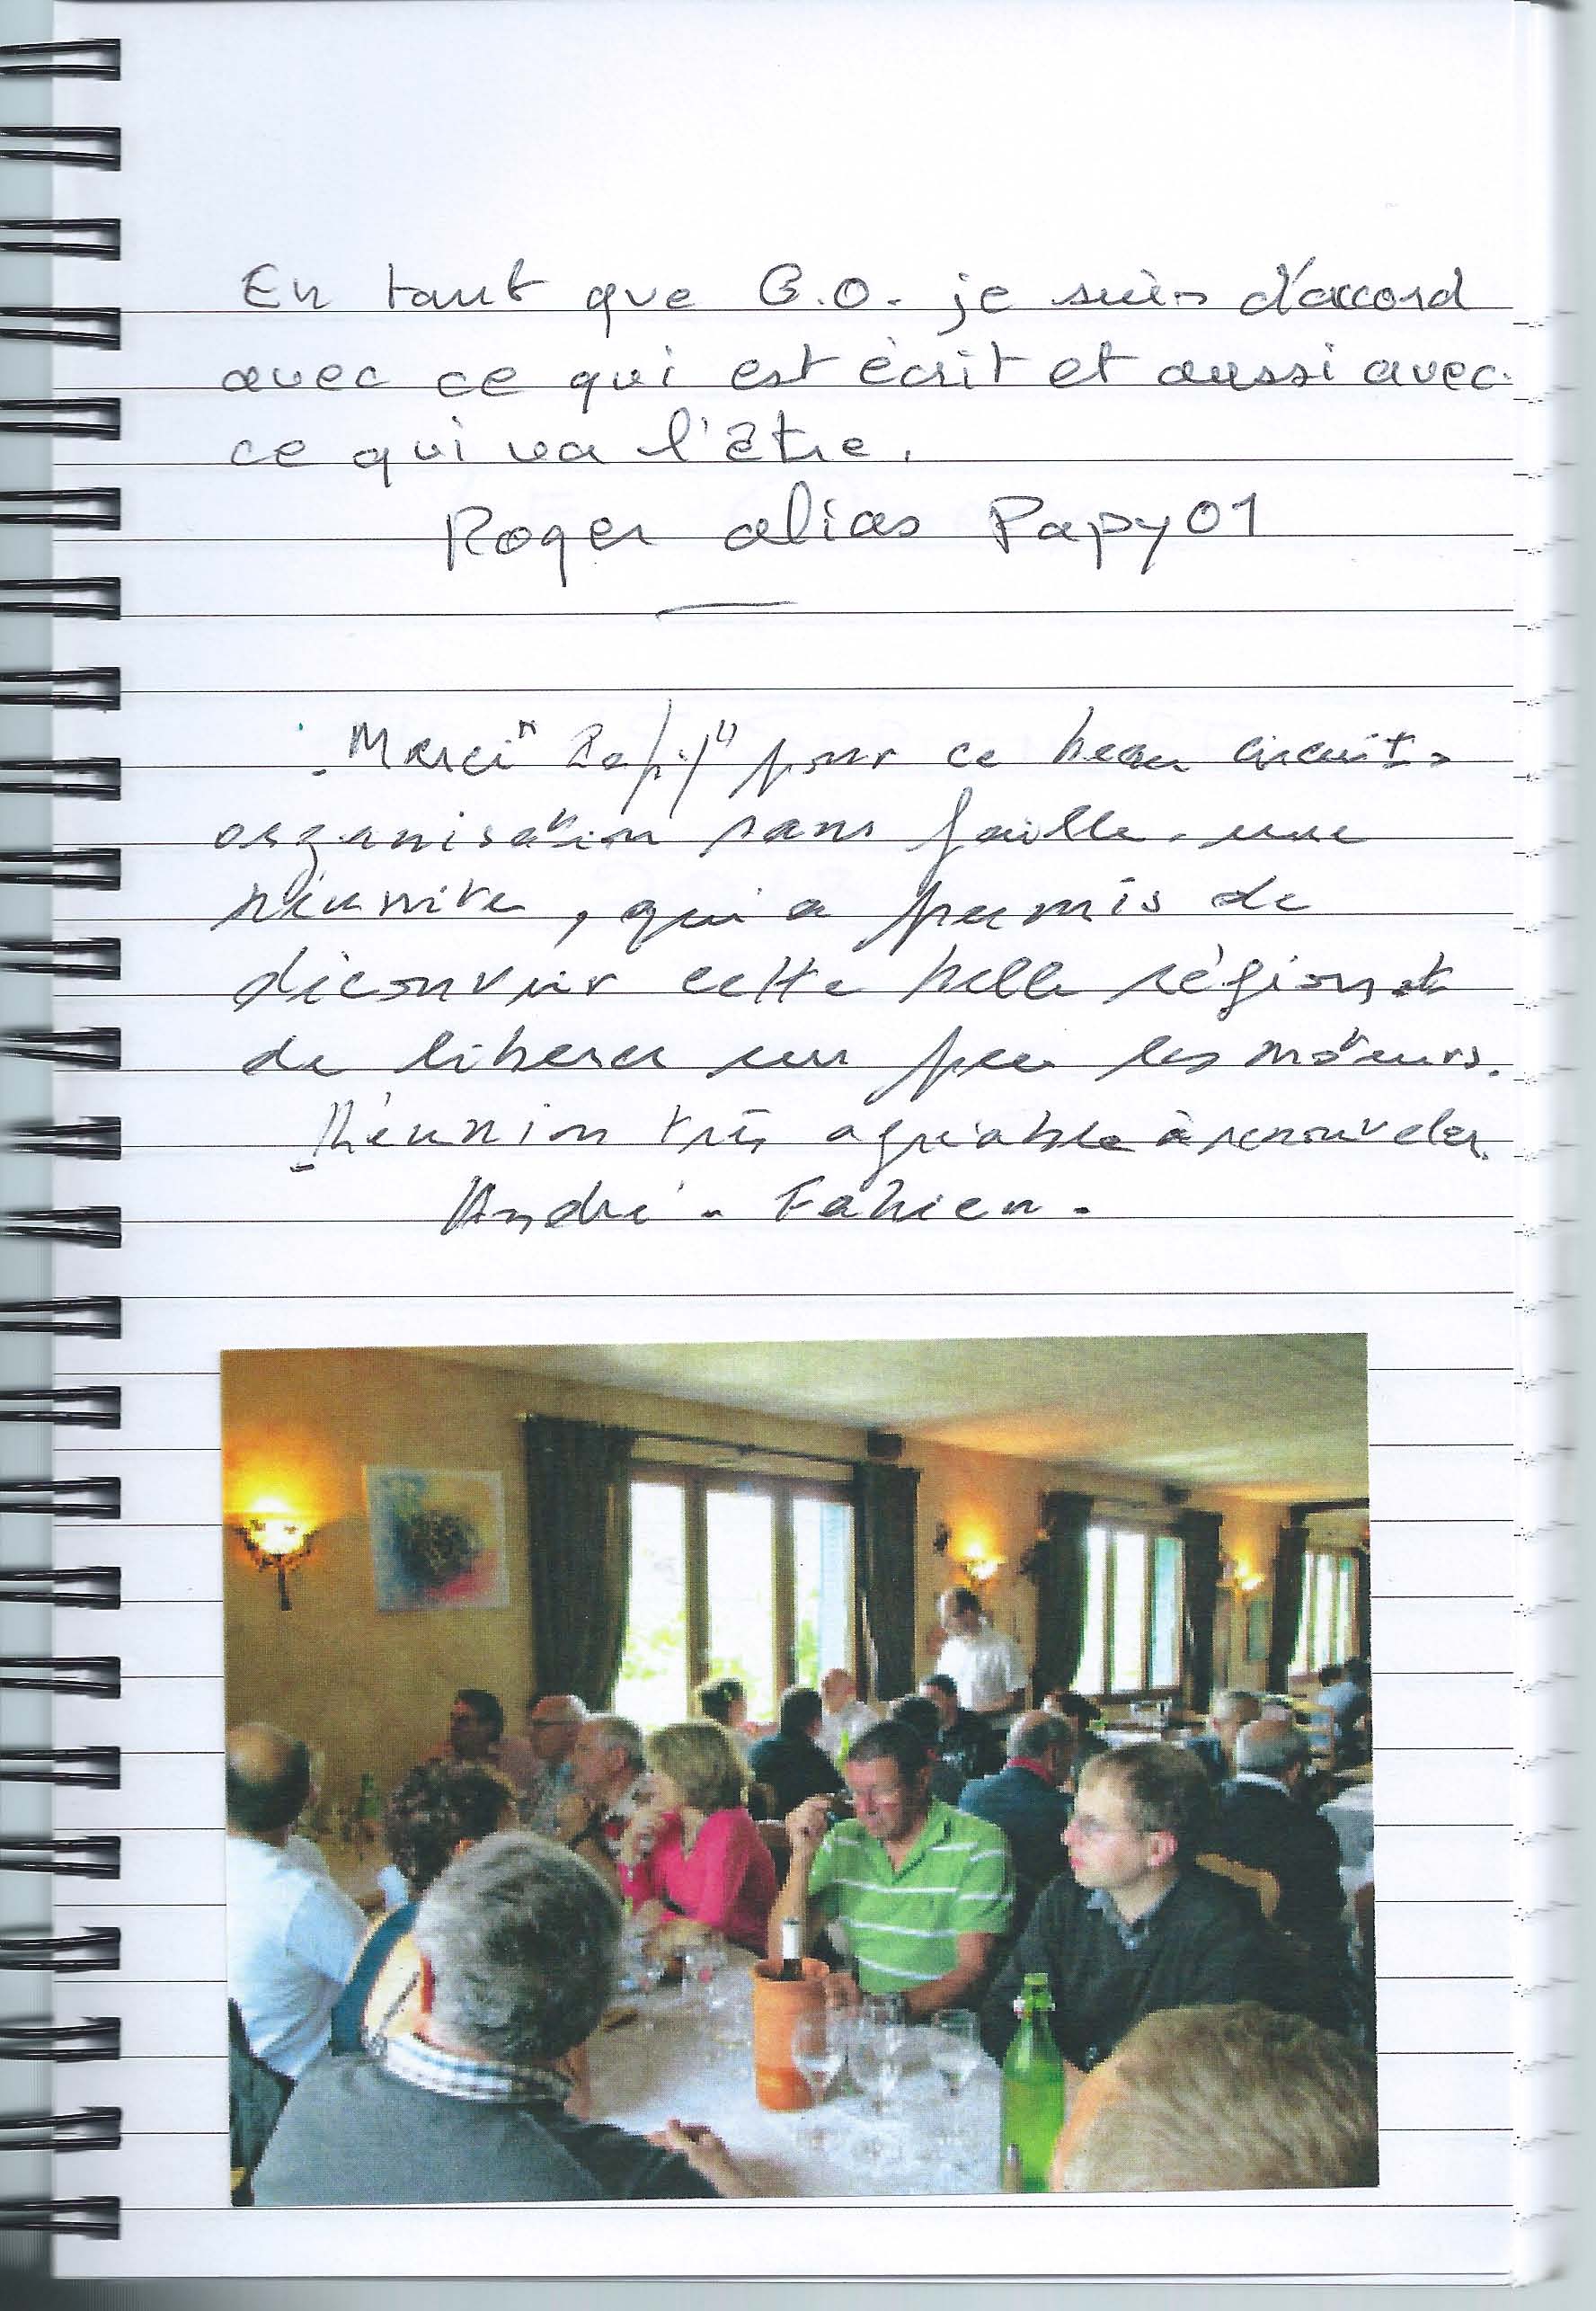 En tant que G.O. je suis d'accord
avec ce qui est écrit et aussi avec
ce qui va l'être.
Roger alias Papy01
Merci "Papy" pour ce beau circuit
organisation sans faille. une
réussite, qui a permis de
découvrir cette belle région et
de liberer un peu les moteurs.
Réunion très agréable à renouveler.
André - Fabien.